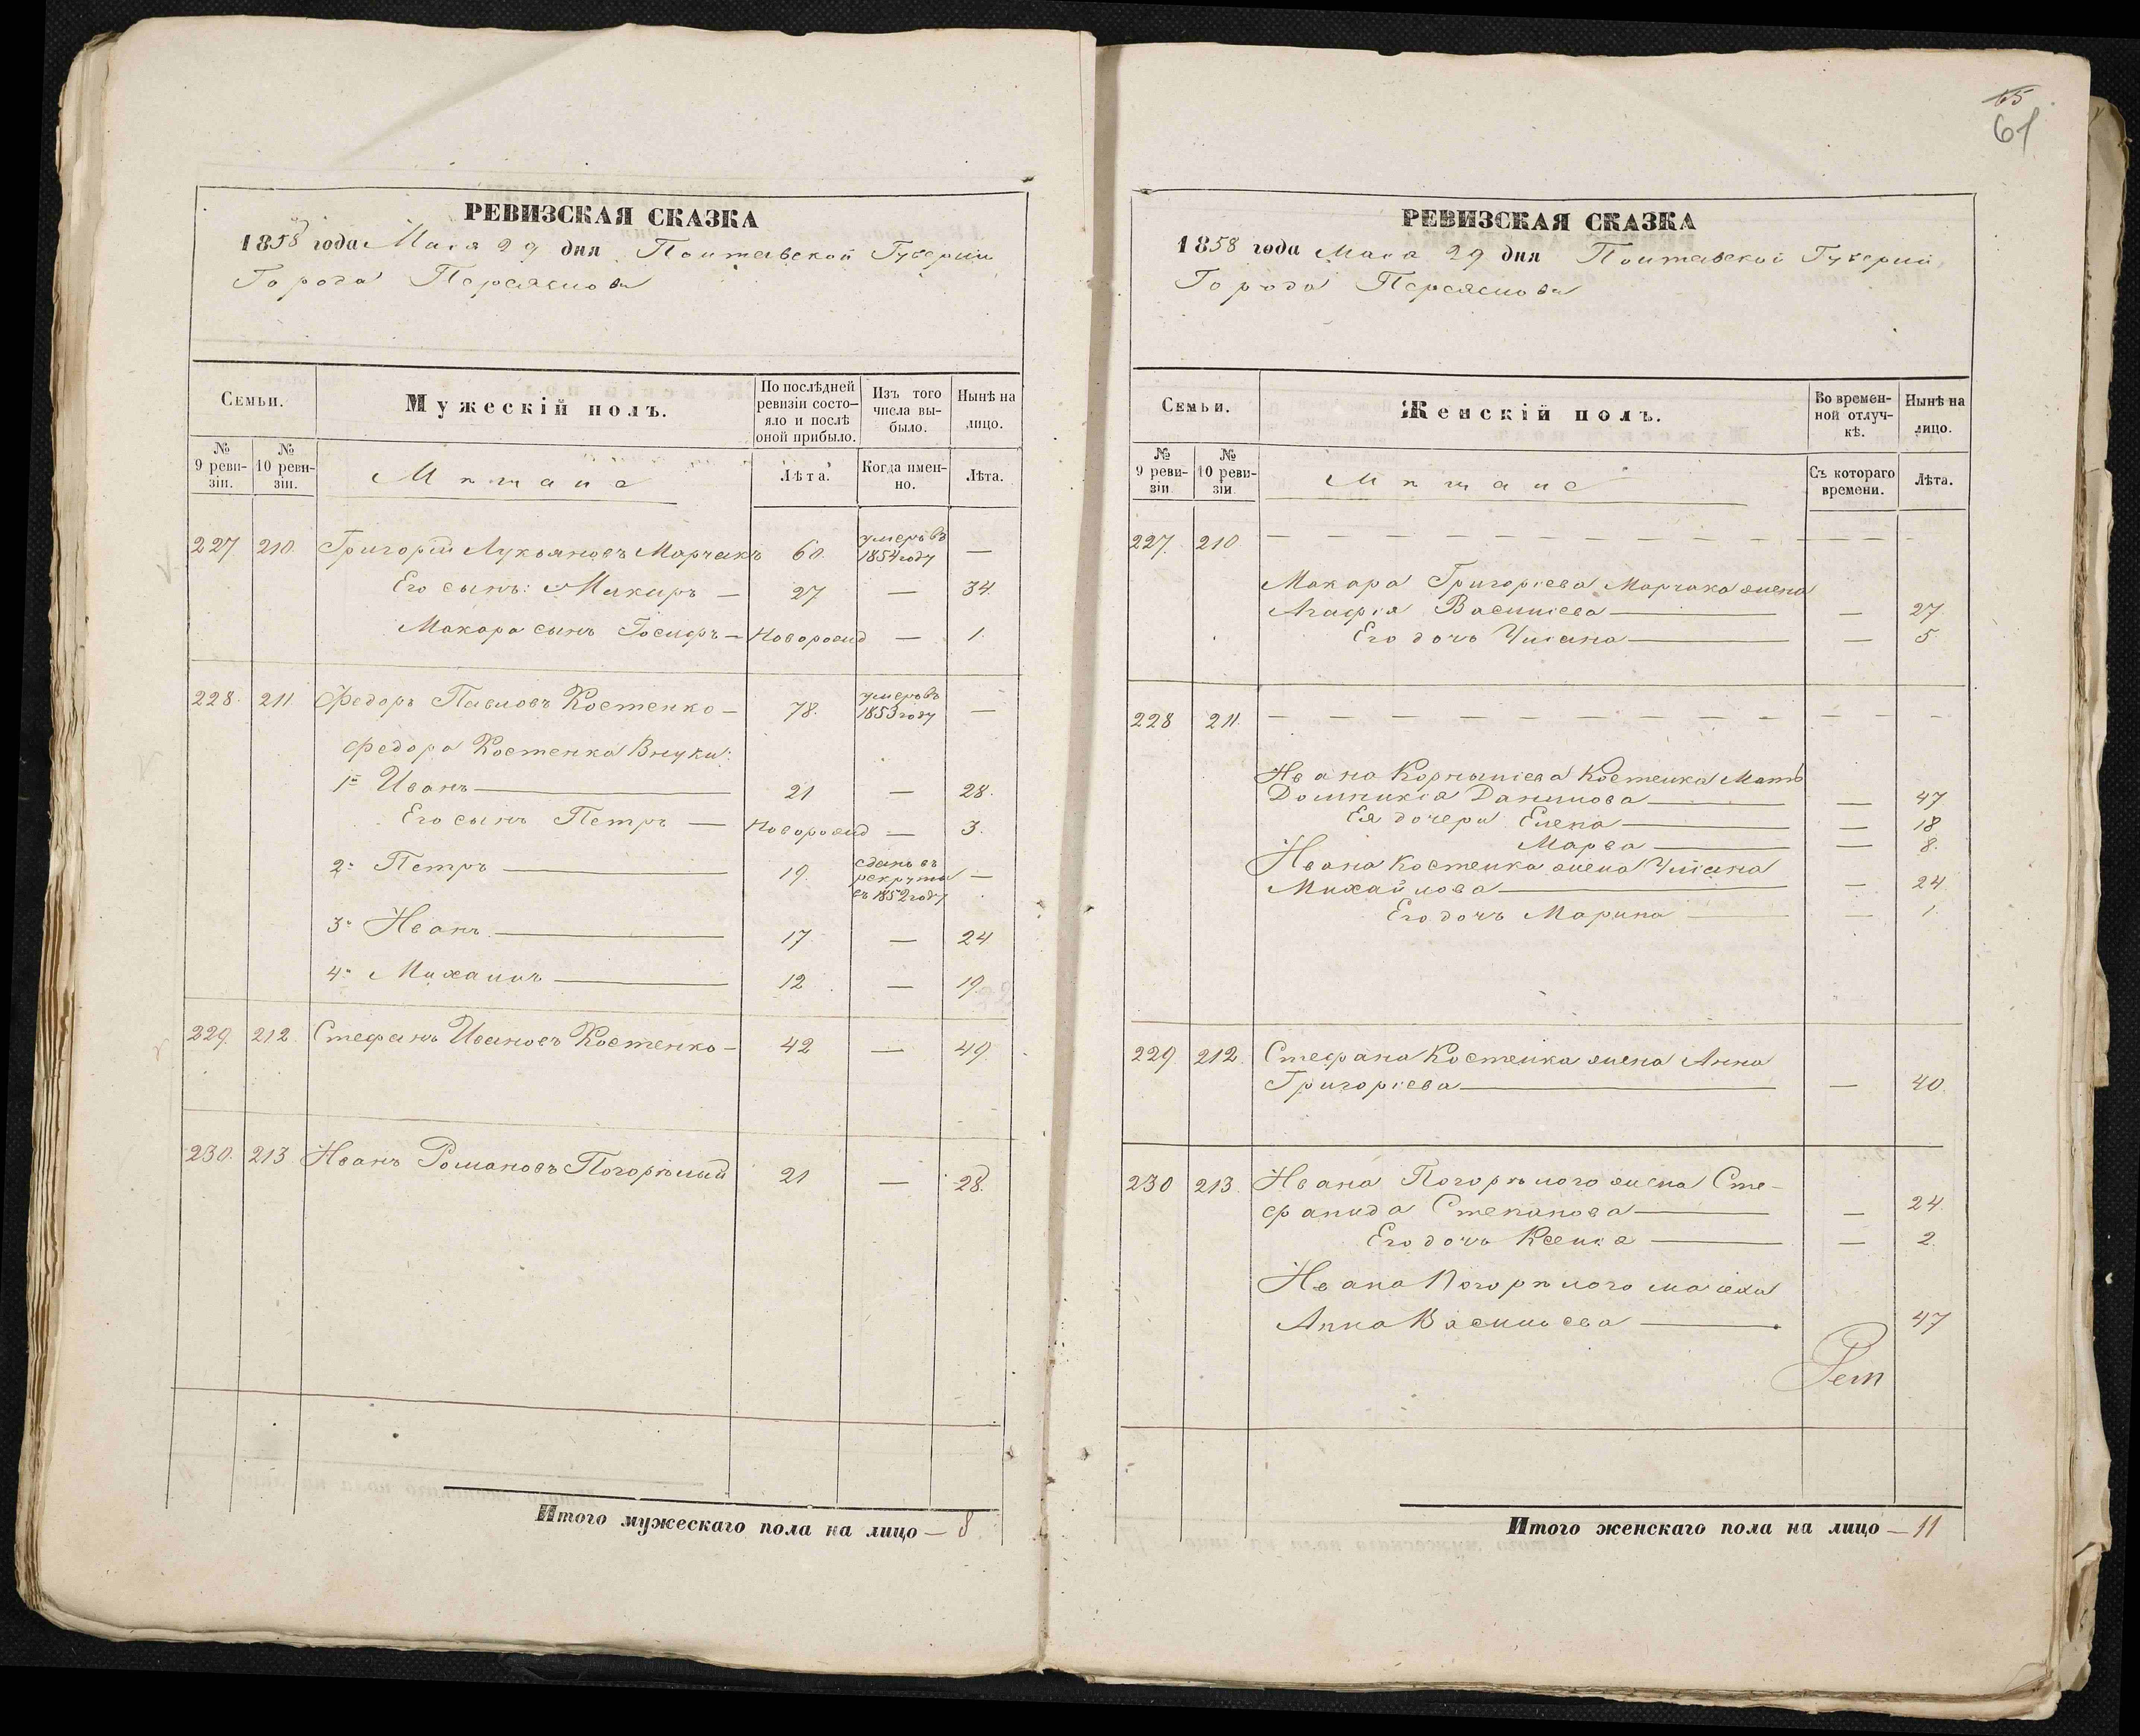 65
61
РЕВИЗСКАЯ СКАЗКА
1858 года Мая 29 дня Полтавской Губерніи
Города Переяслова
Семьи.
Мужескій полъ.
По послѣдней ревизіи состо-яло и послѣ оной прибыло.
Изъ того числа вы-было.
Нынѣ на лицо.
№ 9 реви-зіи.
№ 10 реви-зіи.
Мѣщане
Лѣта.
Когда имен-но.
Лѣта.
227 210. Григорій Лукьяновъ Марчакъ 60. умеръ въ 1854 году —
Его сынъ: Макаръ — 27 — 34.
Макара сынъ Іосифъ — Новорожд — 1.
228. 211 Федоръ Павловъ Костенко — 78. умеръ въ 1853 году —
Федора Костенка Внуки:
1й Иванъ — 21 — 28.
Его сынъ Петръ — Новорожд — 3.
2й Петръ — 19. сданъ въ рекруты въ 1852 году —
3й Иванъ — 17 — 24
4й Михаилъ — 12 — 19.
229. 212. Стефанъ Ивановъ Костенко — 42 — 49.
230. 213. Иванъ Романовъ Погорѣлый 21 — 28.
Итого мужескаго пола на лицо — 8
РЕВИЗСКАЯ СКАЗКА
1858 года Мая 29 дня Полтавской Губерніи
Города Переяслова
Семьи.
Женскій полъ.
Во времен-ной отлуч-кѣ.
Нынѣ на лицо.
№ 9 реви-зіи
№ 10 реви-зіи
Мѣщане
Съ котораго времени.
Лѣта.
227. 210. — — — — — — — — — —
Макара Григоріева Марчака жена
Агафія Василіева — — 27.
Его дочь Уліана — — 5
228 211. — — — — — — — — — —
Ивана Корниліева Костенка Мать
Домникія Данилова — — 47
Ея дочери Елена — — 18
Марва — — 8.
Ивана Костенка жена Уліана
Михайлова — — 24
Его дочь Марина — — 1.
229. 212. Стефана Костенка жена Анна
Григоріева — — 40.
230 213. Ивана Погорѣлого жена Сте-
фанида Степанова — — 24.
Его дочь Ксенія — — 2.
Ивана Погорѣлого мачеха
Анна Васильева — 47
Рет
Итого женскаго пола на лицо — 11